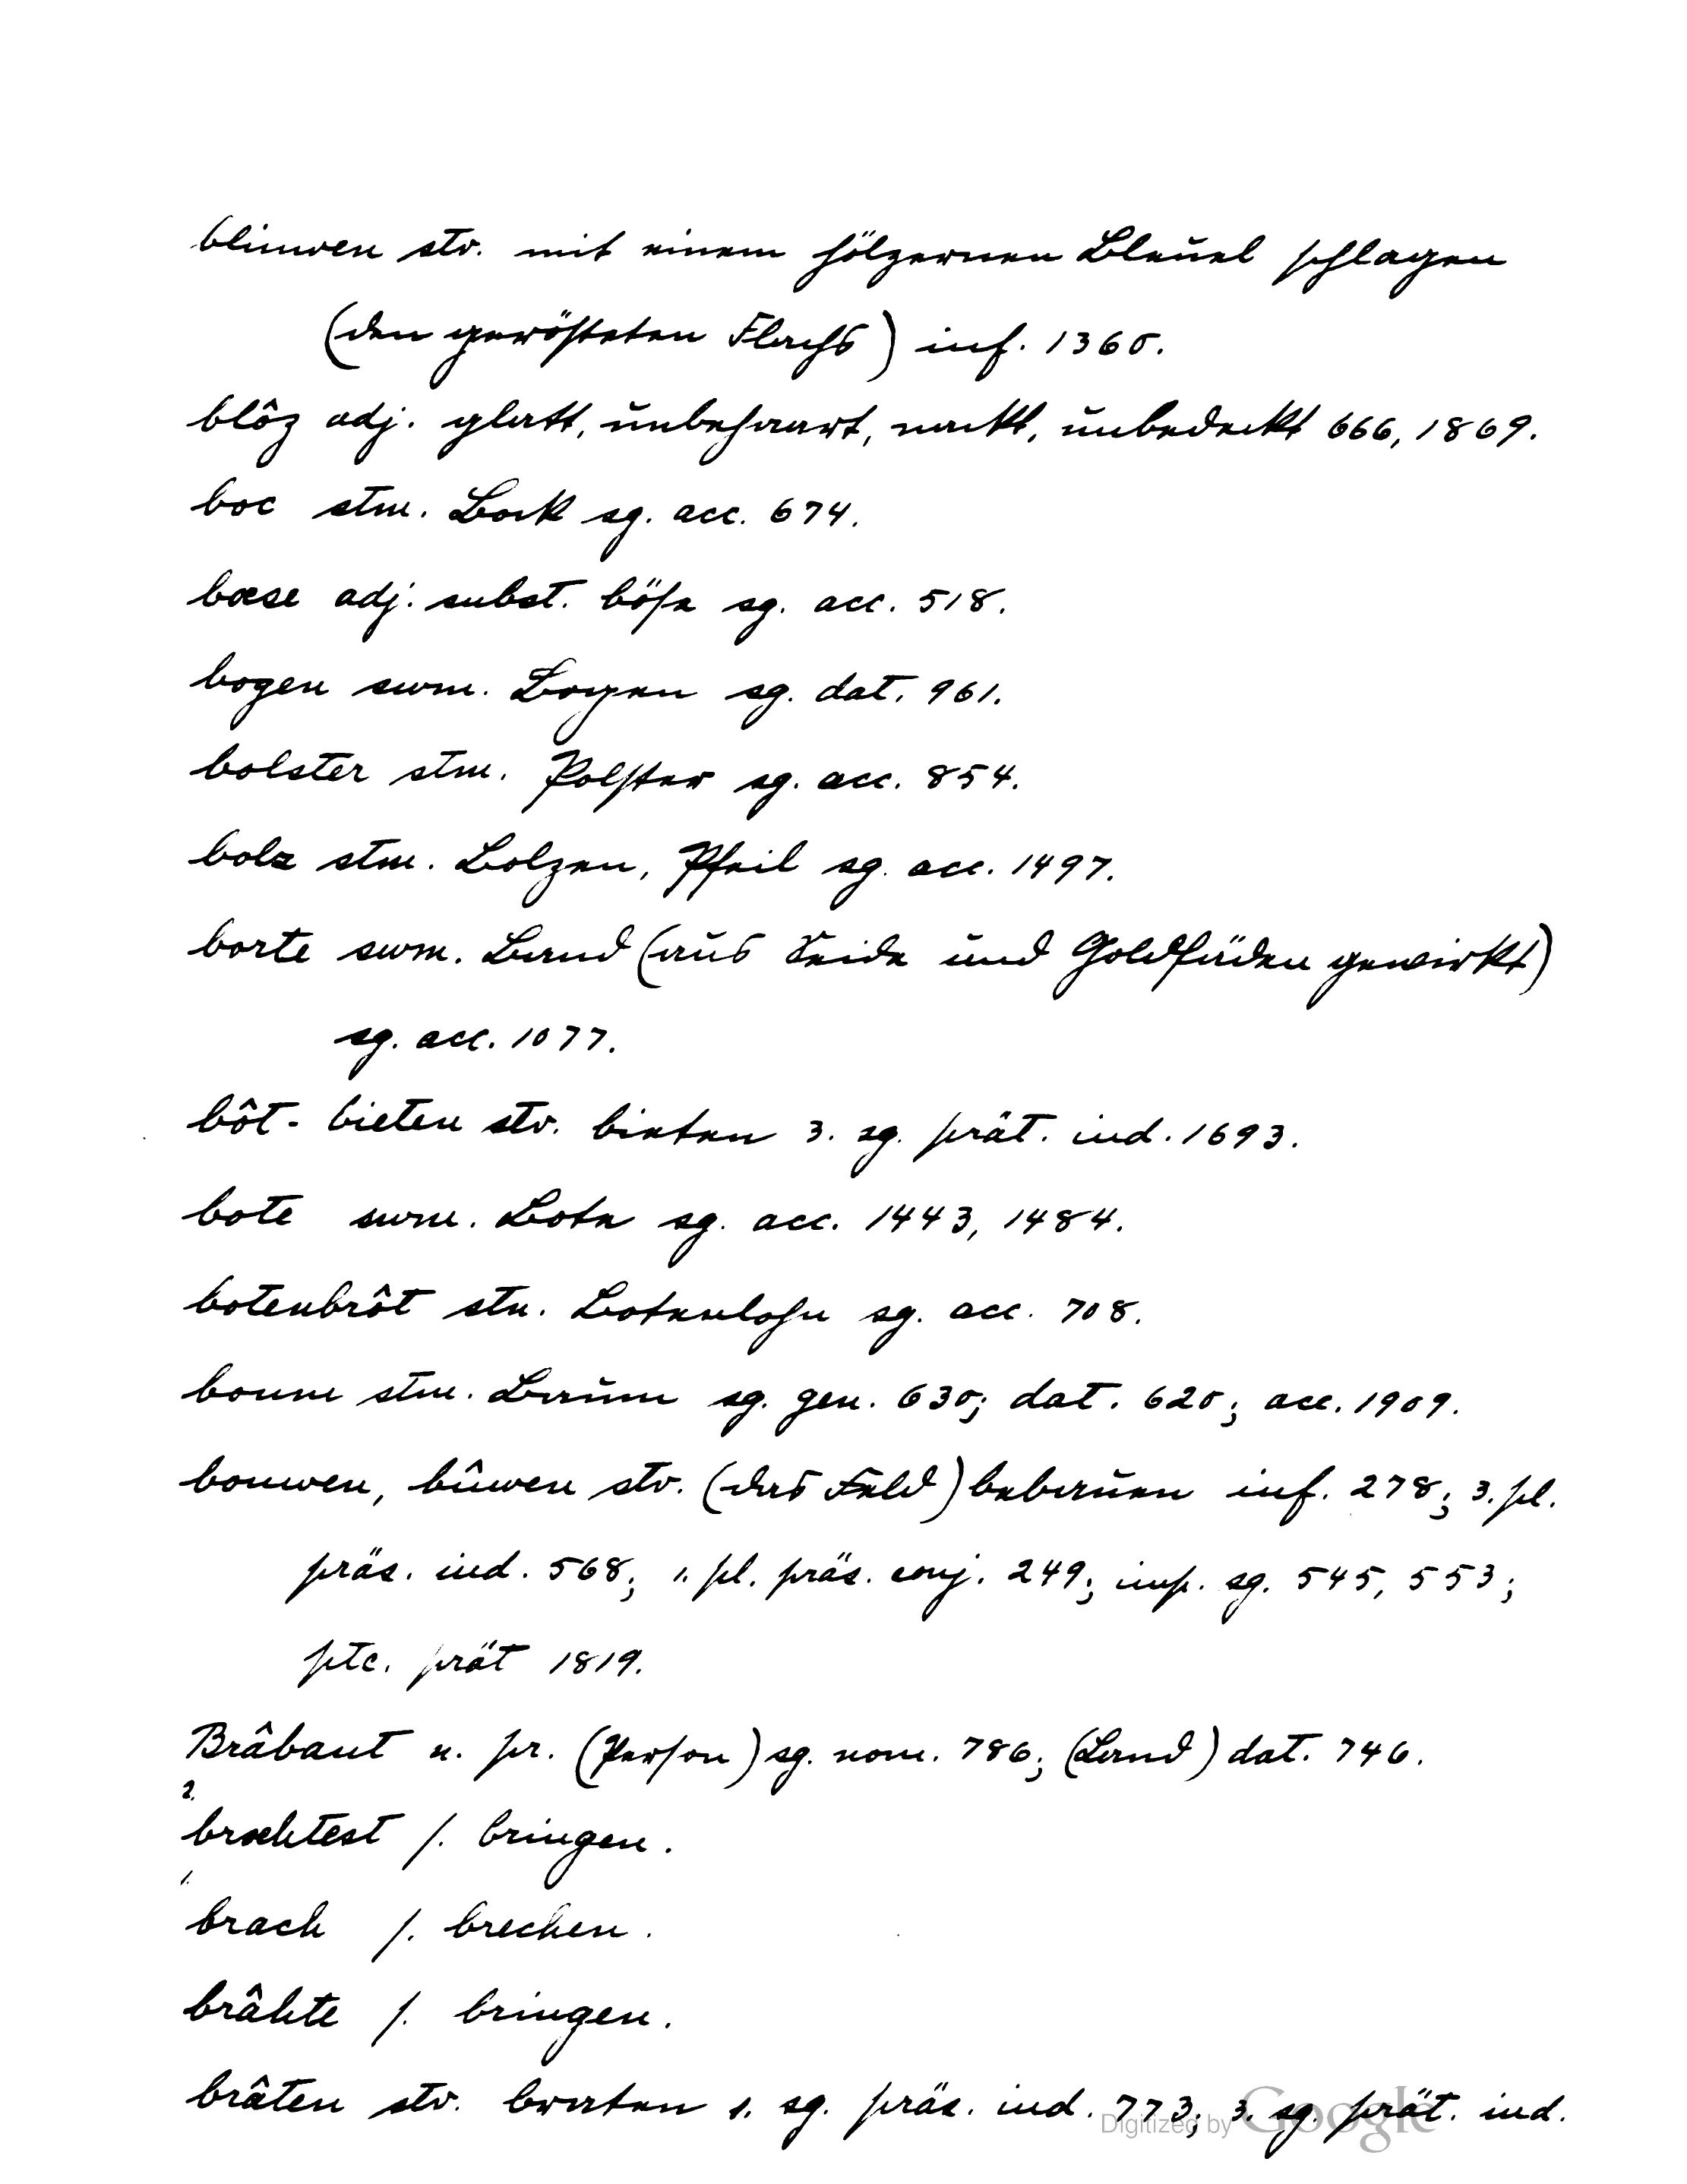 bliuwen stv. mit einem hölzernen Bleuel schlagen
(den gerösteten Flachs) inf. 1360.
blôz adj. glatt, unbehaart, nackt, unbedeckt 666, 1869.
boc stm. Bock sg. acc. 674.
bœse adj. subst. böse sg. acc. 518.
bogen swm. Bogen sg. dat. 961.
bolster stm. Polster sg. acc. 854.
bolz stm. Bolzen, Pfeil sg. acc. 1497.
borte swm. Band (aus Seide und Goldfäden gewirkt)
sg. acc. 1077.
bôt - bieten stv. bieten 3. sg. prät. ind. 1693.
bote swm. Bote sg. acc. 1443, 1484.
botenbrôt stn. Botenlohn sg. acc. 708.
boum stm. Baum sg. gen. 630; dat. 620; acc. 1909.
bouwen, bûwen stv. (das Feld) bebauen inf. 278; 3. pl.
präs. ind. 568; 1. pl. präs. conj. 249; imp. sg. 545, 553;
ptc. prät 1819.
Brâbant n. pr. (Person) sg. nom. 786; (Land) dat. 746.
2.
bræhtest s. bringen.
1.
brach s. brechen.
brâhte s. bringen.
brâten stv. braten 1. sg. präs. ind. 773; 3. sg. prät. ind.
Digitized by Google